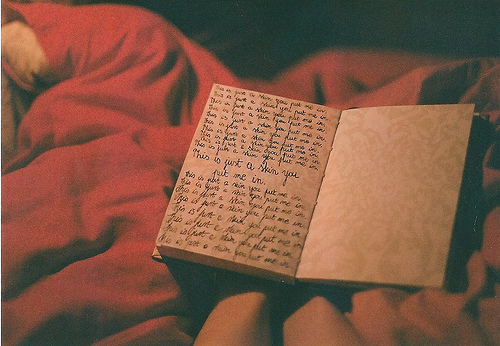 This is just a skin you put me in.
This is just a skin you put me in.
This is just a skin you put me in.
This is just a skin you put me in.
This is just a skin you put me in.
This is just a skin you put me in.
This is just a skin you put me in.
This is just a skin you put me in.
This is just a skin you
put me in.
This is just a skin you put me in.
This is just a skin you put me in.
This is just a skin you put me in.
This is just a skin you put me in.
This is just a skin you put me in.
This is just a skin you put me in.
This is just a skin you put me in.